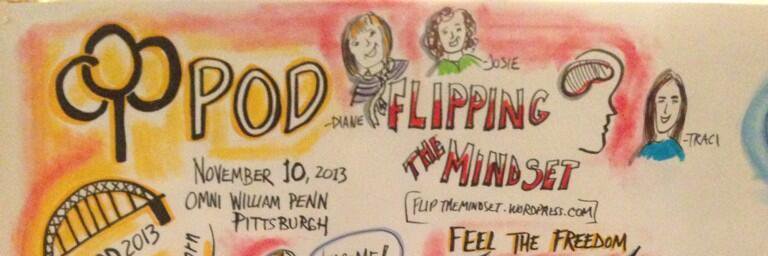 POD
NOVEMBER 10, 2013
OMNI WILLIAM PENN
PITTSBURGH
-DIANE
-JOSIE
FLIPPING
THE MINDSET
[FLIPTHEMINDSET.WORDPRESS.COM]
-TRACI
FEEL THE FREEDOM
2013